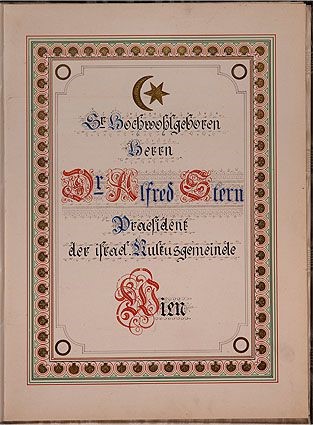 Sr Hochwohlgeboren
Herrn
Dr Alfred Stern
Praesident
der israel. Kultusgemeinde
Wien